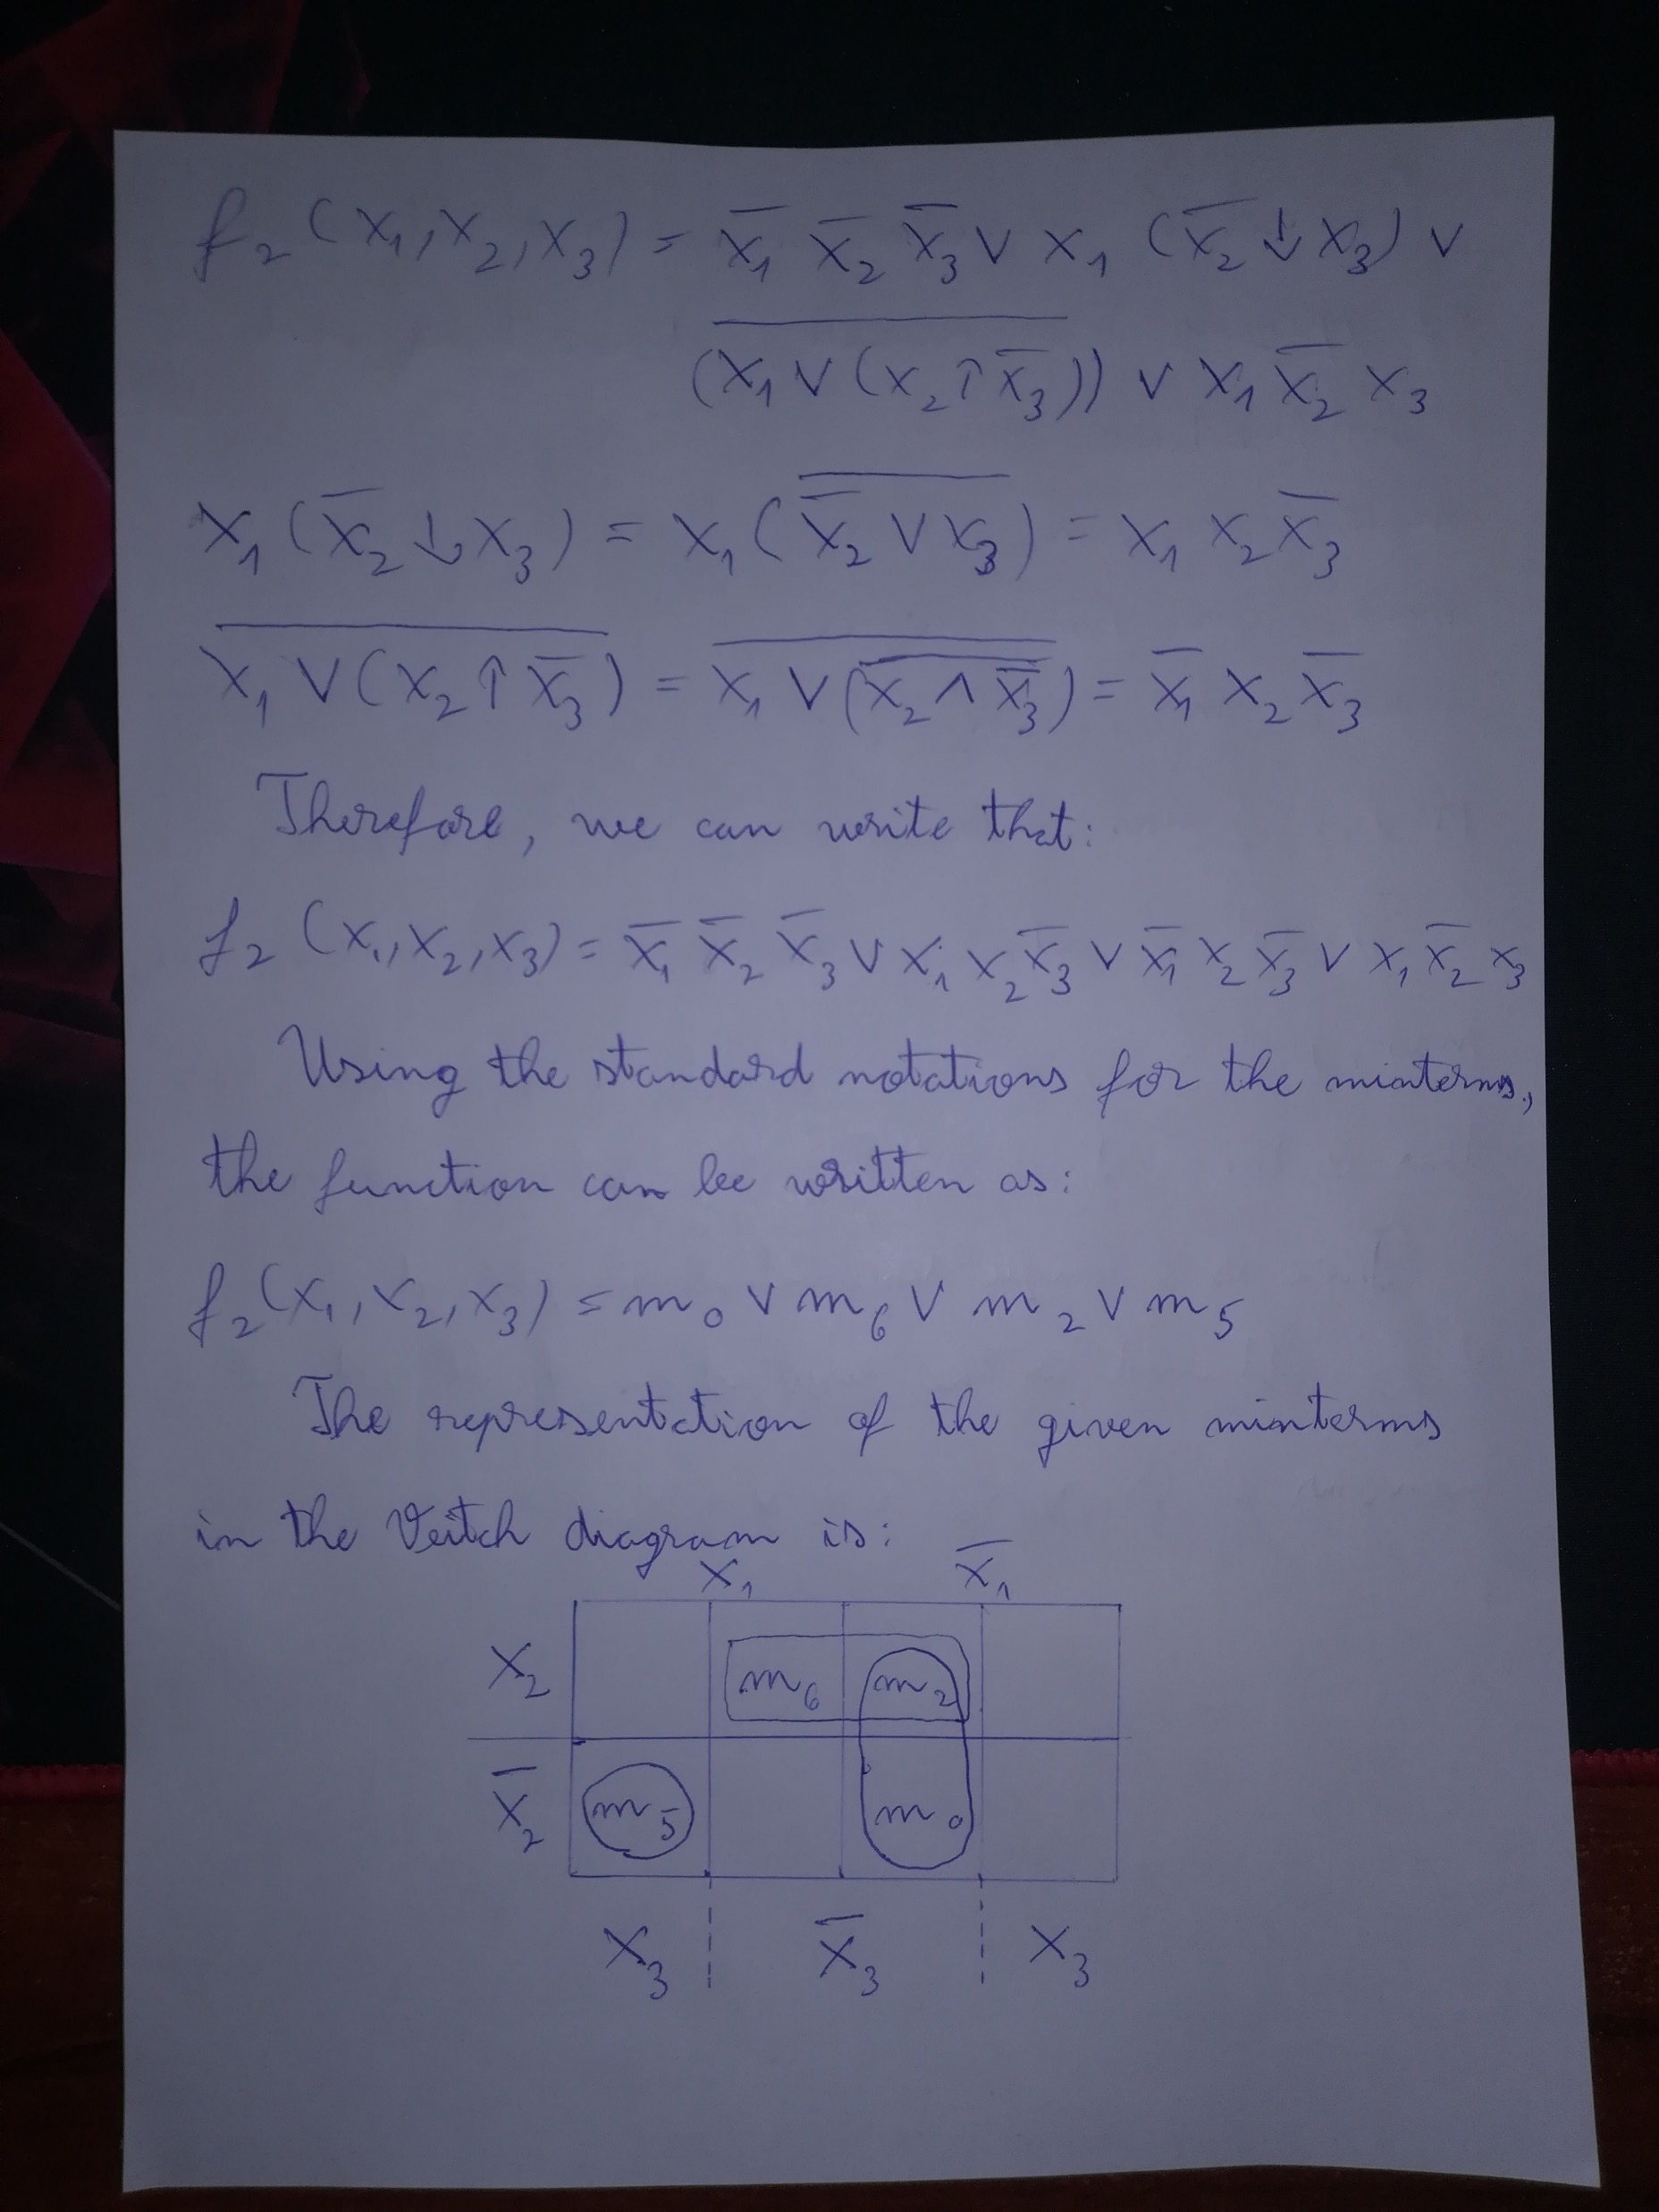 f₂(x₁, x₂, x₃) = x̅₁ x̅₂ x̅₃ ∨ x₁ (x̅₂ ↓ x₃) ∨
\overline{(x₁ ∨ (x₂ ↑ x̅₃))} ∨ x₁ x̅₂ x₃
x₁ (x̅₂ ↓ x₃) = x₁ (\overline{x̅₂ ∨ x₃}) = x₁ x₂ x̅₃
\overline{x₁ ∨ (x₂ ↑ x̅₃)} = \overline{x₁ ∨ (\overline{x₂ ∧ x̅₃})} = x̅₁ x₂ x̅₃
Therefore, we can write that:
f₂ (x₁, x₂, x₃) = x̅₁ x̅₂ x̅₃ ∨ x₁ x₂ x̅₃ ∨ x̅₁ x₂ x̅₃ ∨ x₁ x̅₂ x₃
Using the standard notations for the minterms,
the function can be written as:
f₂(x₁, x₂, x₃) = m₀ ∨ m₆ ∨ m₂ ∨ m₅
The representation of the given minterms
in the Veitch diagram is:
x₁ x̅₁
x₂ m₆ m₂
x̅₂ m₅ m₀
x₃ x̅₃ x₃